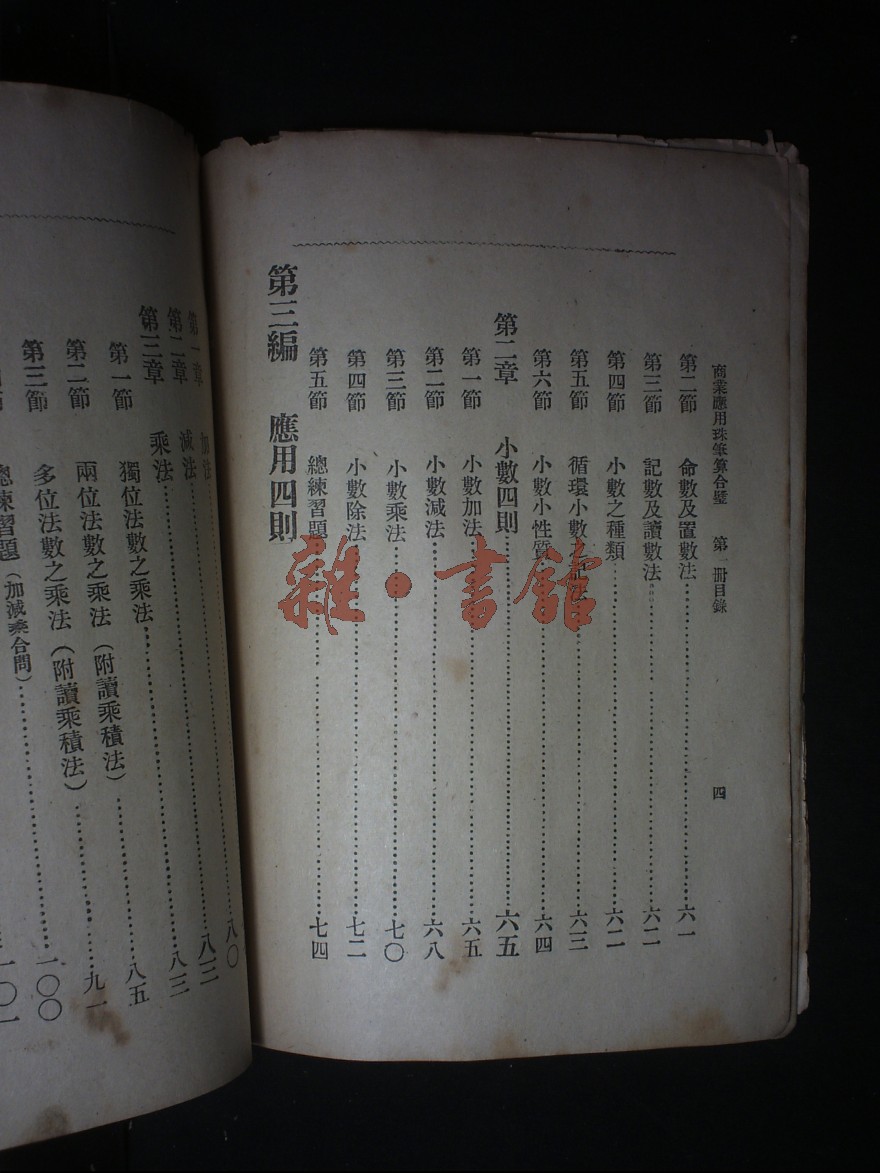 商業應用珠筆算合璧　第一冊目錄　四
第二節　命數及置數法……六一
第三節　記數及讀數法……六二
第四節　小數之種類……六二
第五節　循環小數……六三
第六節　小數小性質……六四
第二章　小數四則……六五
第一節　小數加法……六五
第二節　小數減法……六八
第三節　小數乘法……七〇
第四節　小數除法……七二
第五節　總練習題……七四
第三編　應用四則
第一章　加法……八〇
第二章　減法……八三
第三章　乘法……八三
第一節　獨位法數之乘法……八五
第二節　兩位法數之乘法（附讀乘積法）……九一
第三節　多位法數之乘法（附讀乘積法）……一〇〇
總練習題（加減乘合問）……一〇一
雜·書館